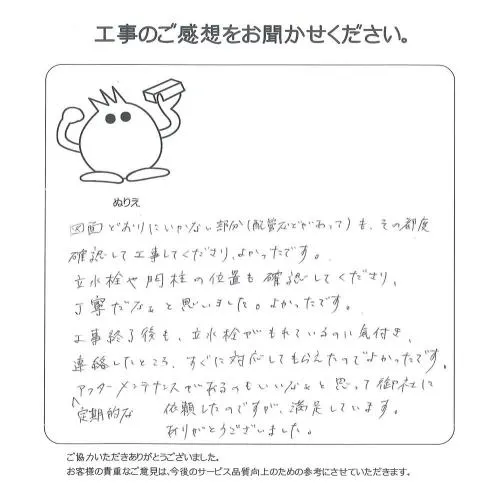 工事のご感想をお聞かせください。
ぬりえ
図面どおりにいかない部分(配管などがあって)も、その都度
確認して工事してくださり、よかったです。
立水栓や門柱の位置も確認してくださり、
丁寧だなぁと思いました。よかったです。
工事終了後も、立水栓がもれているのに気付き、
連絡したところ、すぐに対応してもらえたのでよかったです。
アフターメンテナンスがあるのもいいなぁと思って御社に
定期的な 依頼したのですが、満足しています。
ありがとうございました。
ご協力いただきありがとうございました。
お客様の貴重なご意見は、今後のサービス品質向上のための参考にさせていただきます。